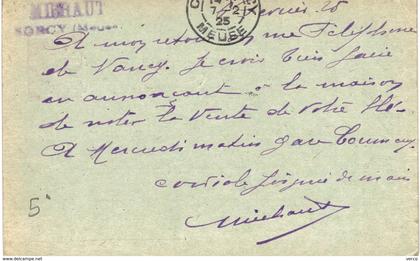 MICHAUT
SORCY (Meuse)
7-2
25
MEUSE
A mon retour me Téléphone
de Nancy. Je crois bien faire
en annonçant à la maison
de noter la vente de votre blé
A Mercredi matin gare
poignée de main
Michaut
5